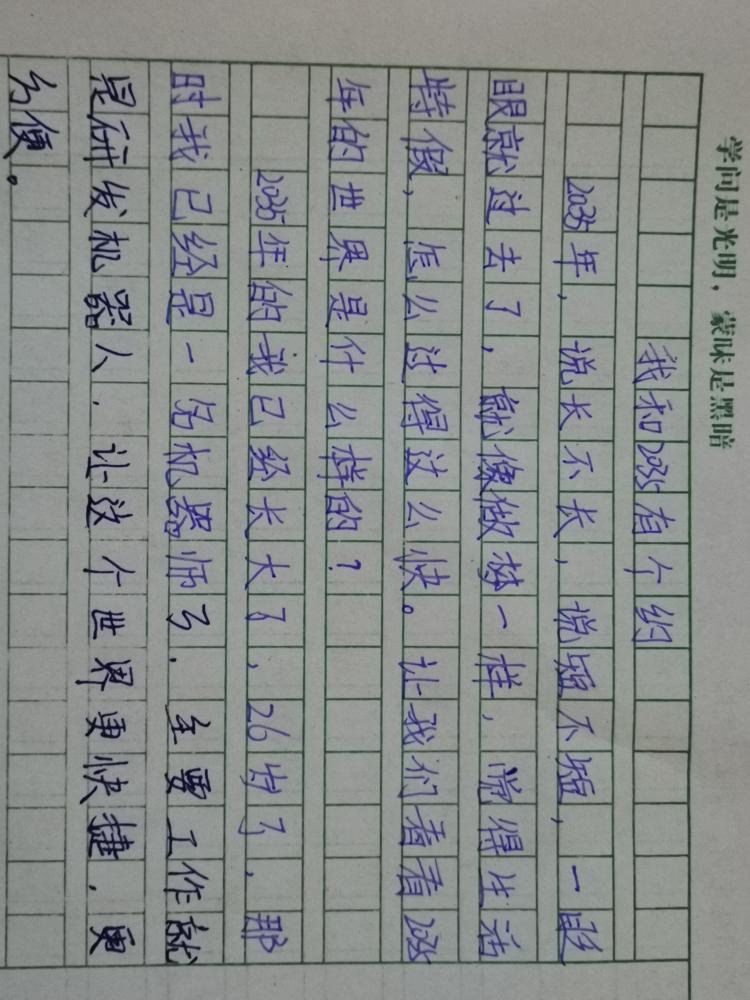 学问是光明，蒙昧是黑暗
我和2035有个约
2035年，说长不长，说短不短，一眨
眼就过去了，就像做梦一样，觉得生活
特假，怎么过得这么快。让我们看看2035
年的世界是什么样的？
2035年的我已经长大了，26岁了，那
时我已经是一名机器师了．主要工作就
是研发机器人．让这个世界更快捷．更
方便。